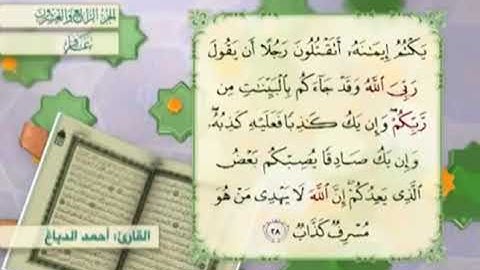 الجزء الرابع والعشرون
غافر
يَكْتُمُ إِيمَٰنَهُۥٓ أَتَقْتُلُونَ رَجُلًا أَن يَقُولَ
رَبِّىَ ٱللَّهُ وَقَدْ جَآءَكُم بِٱلْبَيِّنَٰتِ مِن
رَّبِّكُمْ ۖ وَإِن يَكُ كَٰذِبًا فَعَلَيْهِ كَذِبُهُۥ ۖ
وَإِن يَكُ صَادِقًا يُصِبْكُم بَعْضُ
ٱلَّذِى يَعِدُكُمْ ۖ إِنَّ ٱللَّهَ لَا يَهْدِى مَنْ هُوَ
مُسْرِفٌ كَذَّابٌ ٢٨
القارئ: أحمد الدباغ